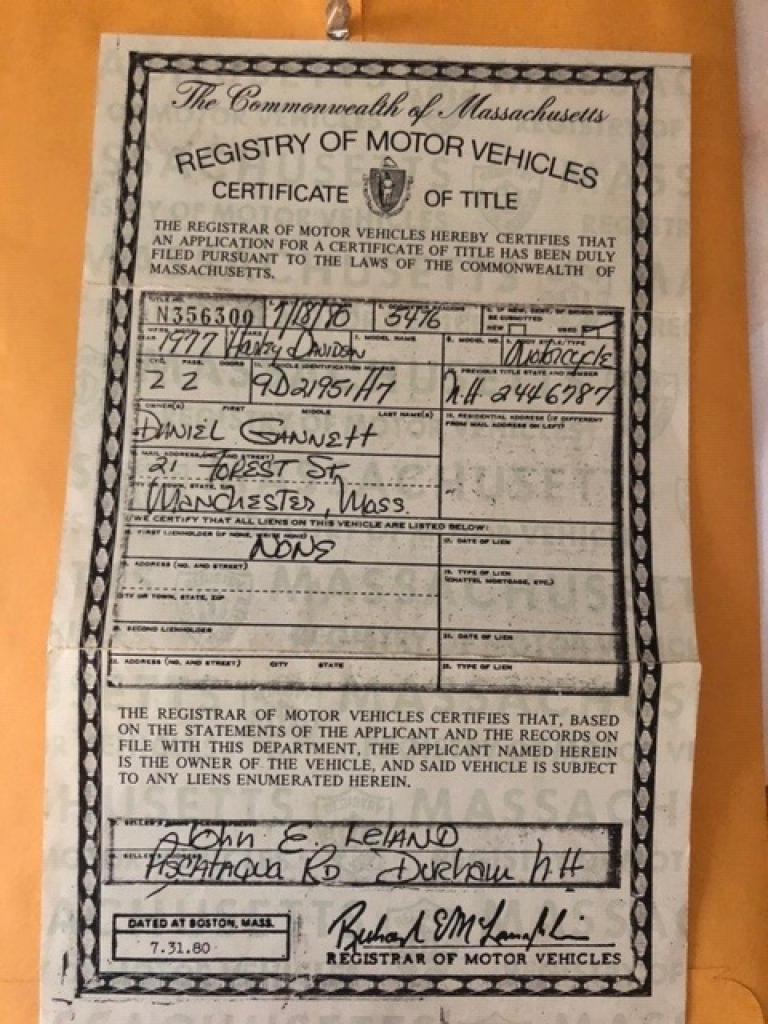 The Commonwealth of Massachusetts
REGISTRY OF MOTOR VEHICLES
CERTIFICATE OF TITLE
THE REGISTRAR OF MOTOR VEHICLES HEREBY CERTIFIES THAT
AN APPLICATION FOR A CERTIFICATE OF TITLE HAS BEEN DULY
FILED PURSUANT TO THE LAWS OF THE COMMONWEALTH OF
MASSACHUSETTS.
TITLE NO.
N356300 7/18/80 5476 NEW USED
YEAR MODEL NAME MODEL NO.
1977 Harley Davidson Motorcycle
CYL. PASS. DOORS VEHICLE IDENTIFICATION PREVIOUS TITLE STATE AND NUMBER
2 2 9D21951H7 N.H. 2446787
OWNER(S) FIRST MIDDLE LAST NAME(S) RESIDENTIAL ADDRESS (IF DIFFERENT
FROM MAIL ADDRESS ON LEFT)
DANIEL GANNETT
21 FOREST St
MANCHESTER, Mass.
I/WE CERTIFY THAT ALL LIENS ON THIS VEHICLE ARE LISTED BELOW:
FIRST LIENHOLDER (IF NONE, WRITE NONE) DATE OF LIEN
NONE
ADDRESS (NO. AND STREET) TYPE OF LIEN
(CHATTEL MORTGAGE, ETC.)
CITY OR TOWN, STATE, ZIP
SECOND LIENHOLDER DATE OF LIEN
ADDRESS (NO. AND STREET) CITY STATE TYPE OF LIEN
THE REGISTRAR OF MOTOR VEHICLES CERTIFIES THAT, BASED
ON THE STATEMENTS OF THE APPLICANT AND THE RECORDS ON
FILE WITH THIS DEPARTMENT, THE APPLICANT NAMED HEREIN
IS THE OWNER OF THE VEHICLE, AND SAID VEHICLE IS SUBJECT
TO ANY LIENS ENUMERATED HEREIN.
John E. LELAND
PISCATAQUA RD Durham N.H
DATED AT BOSTON, MASS.
7.31.80
Richard E McLaughlin
REGISTRAR OF MOTOR VEHICLES